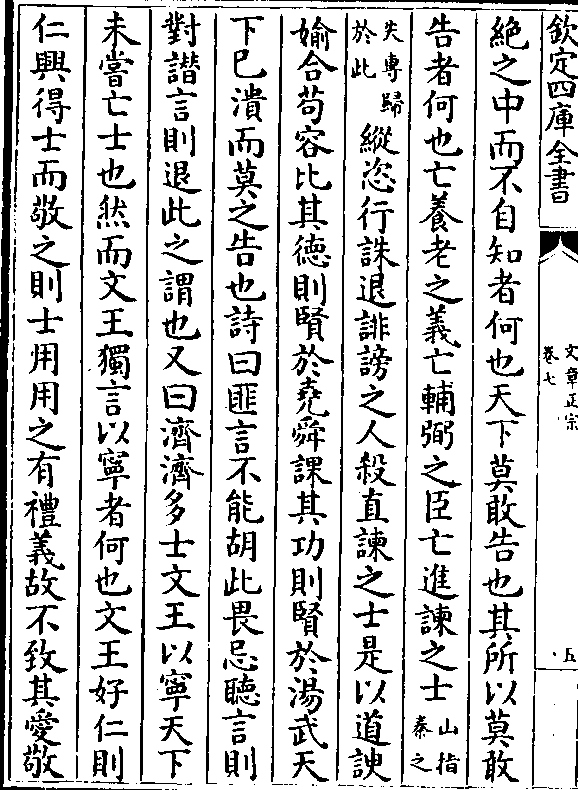 欽定四庫全書
文章正宗
卷七
五
絶之中而不自知者何也天下莫敢告也其所以莫敢
告者何也亡養老之義亡輔弼之臣亡進諫之士山指秦之
失專歸於此縱恣行誅退誹謗之人殺直諫之士是以道諛
媮合苟容比其德則賢於堯舜課其功則賢於湯武天
下已潰而莫之告也詩曰匪言不能胡此畏忌聽言則
對譖言則退此之謂也又曰濟濟多士文王以寧天下
未嘗亡士也然而文王獨言以寧者何也文王好仁則
仁興得士而敬之則士用用之有禮義故不致其愛敬